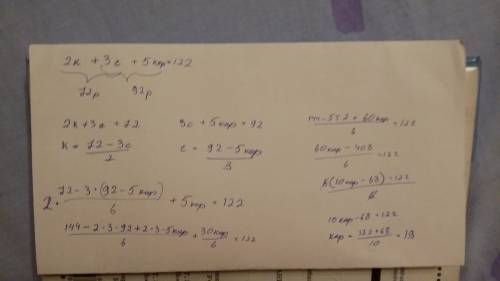 2к + 3с + 5кор = 122
72р 92р
2к + 3с = 72
к = (72 - 3с)/2
3с + 5кор = 92
с = (92 - 5кор)/3
2 · (72 - 3 · (92 - 5кор))/6 + 5кор = 122
(144 - 2·3·92 + 2·3·5кор)/6 + 30кор/6 = 122
(60кор - 408)/6 = 122
6(10кор - 68)/6 = 122
10кор - 68 = 122
кор = (122 + 68)/10 = 19